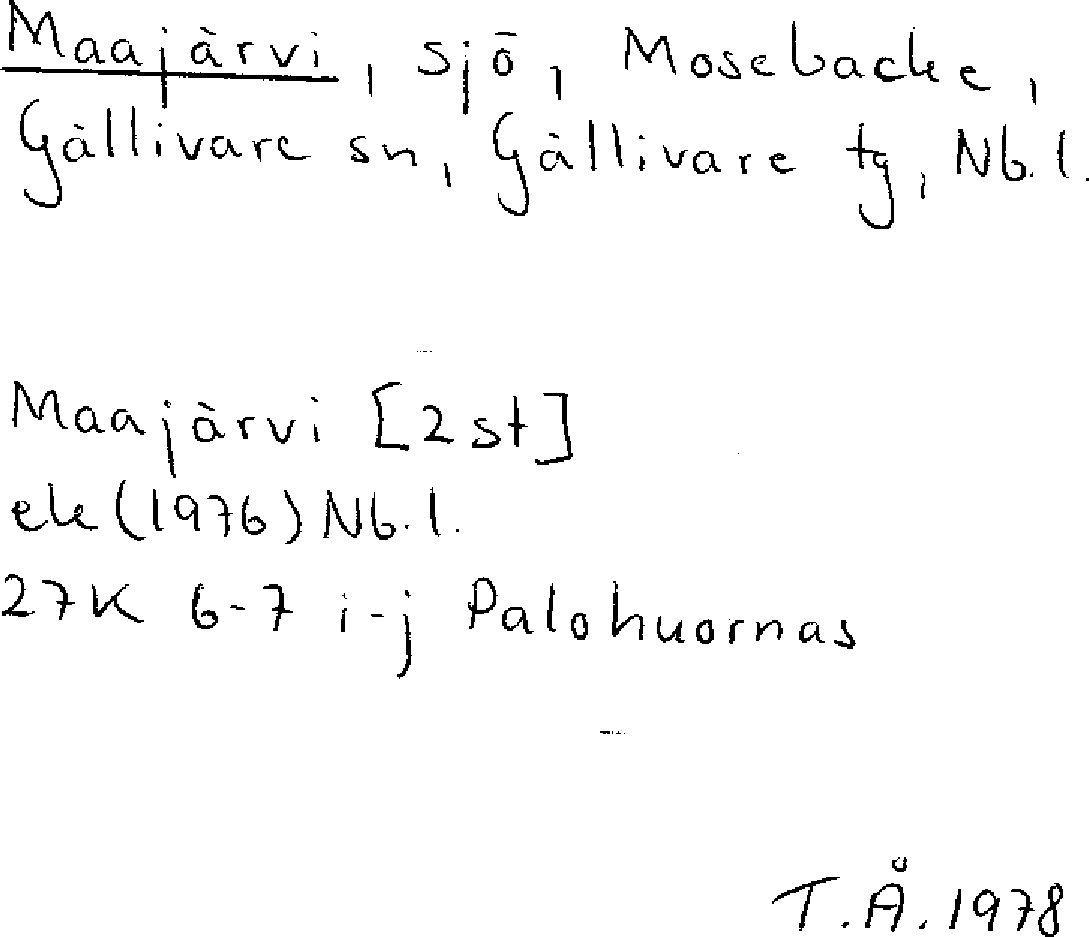 Maajärvi, sjö, Mosebacke,
Gällivare sn, Gällivare tg, Nb. l.
Maajärvi [2 st]
ek (1976) Nb. l.
27K 6-7 i-j Palohuornas
T.Å. 1978